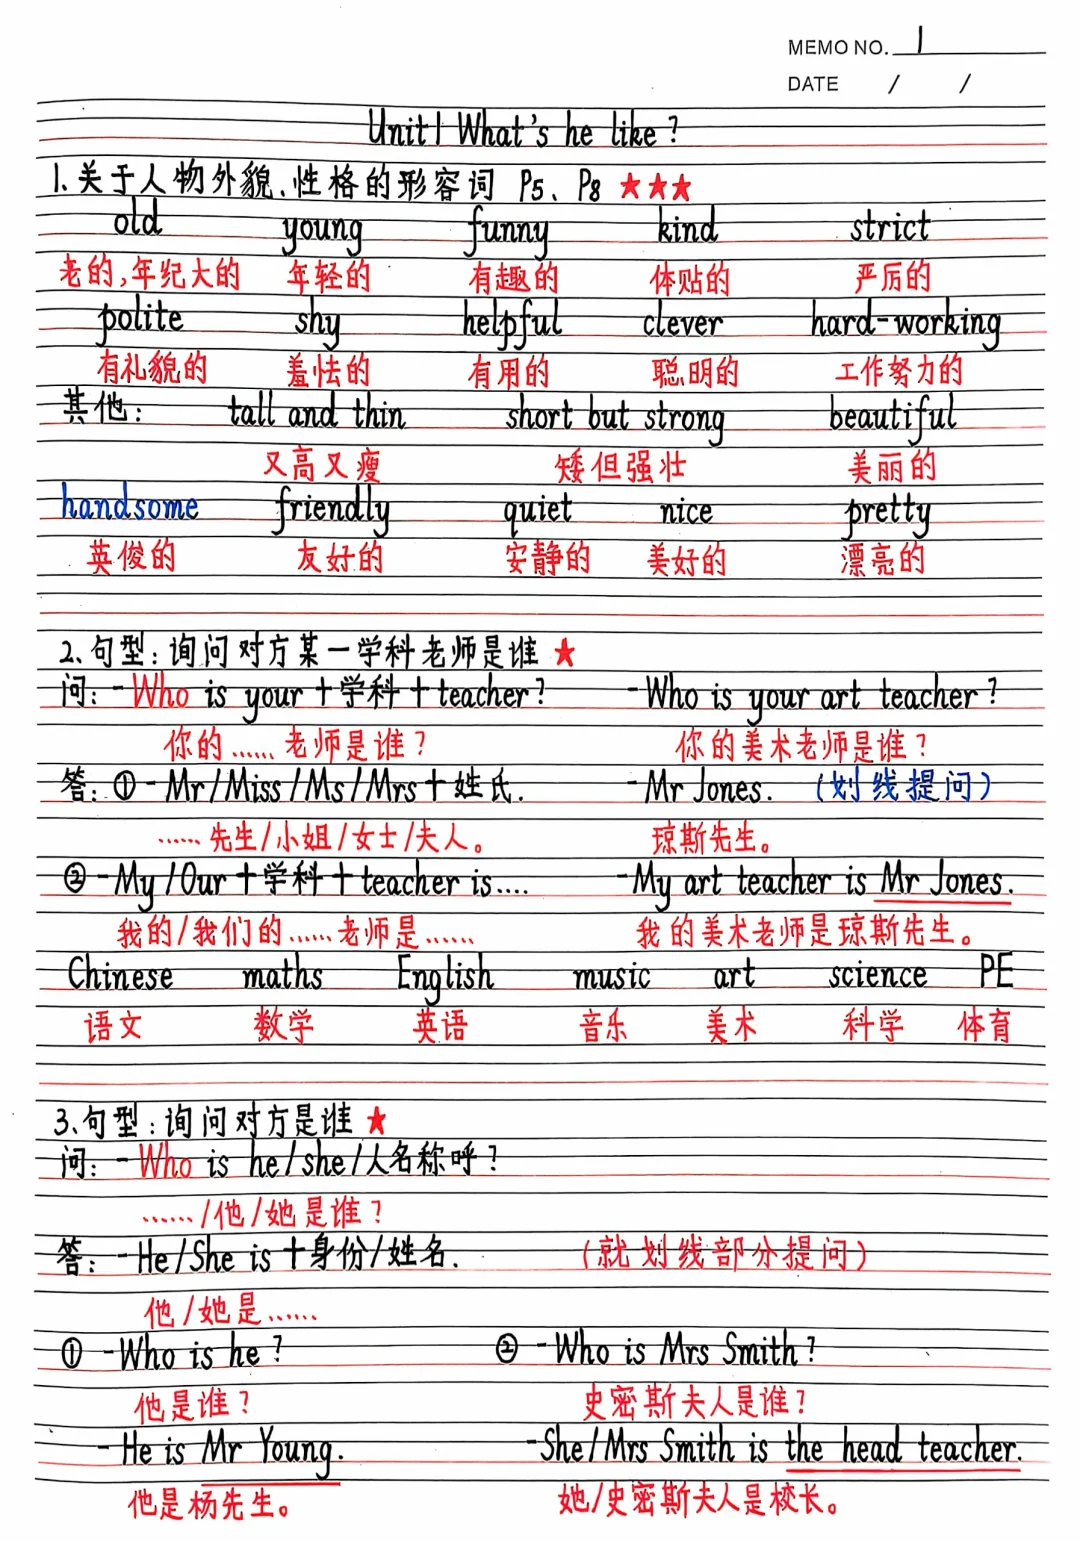 MEMO NO. 1
DATE / /
Unit1 What's he like?
1.关于人物外貌、性格的形容词 P5、P8 ★★★
old young funny kind strict
老的,年纪大的 年轻的 有趣的 体贴的 严厉的
polite shy helpful clever hard-working
有礼貌的 羞怯的 有用的 聪明的 工作努力的
其他: tall and thin short but strong beautiful
又高又瘦 矮但强壮 美丽的
handsome friendly quiet nice pretty
英俊的 友好的 安静的 美好的 漂亮的
2、句型:询问对方某一学科老师是谁 ★
问:-Who is your+学科+teacher? -Who is your art teacher?
你的……老师是谁? 你的美术老师是谁?
答:①-Mr/Miss/Ms/Mrs+姓氏. -Mr Jones. (划线提问)
……先生/小姐/女士/夫人。 琼斯先生。
②-My/Our+学科+teacher is.... -My art teacher is Mr Jones.
我的/我们的……老师是…… 我的美术老师是琼斯先生。
Chinese maths English music art science PE
语文 数学 英语 音乐 美术 科学 体育
3、句型:询问对方是谁 ★
问:-Who is he/she/人名称呼?
……/他/她是谁?
答:-He/She is+身份/姓名. (就划线部分提问)
他/她是……
① -Who is he? ② -Who is Mrs Smith?
他是谁? 史密斯夫人是谁?
-He is Mr Young. -She/Mrs Smith is the head teacher.
他是杨先生。 她/史密斯夫人是校长。